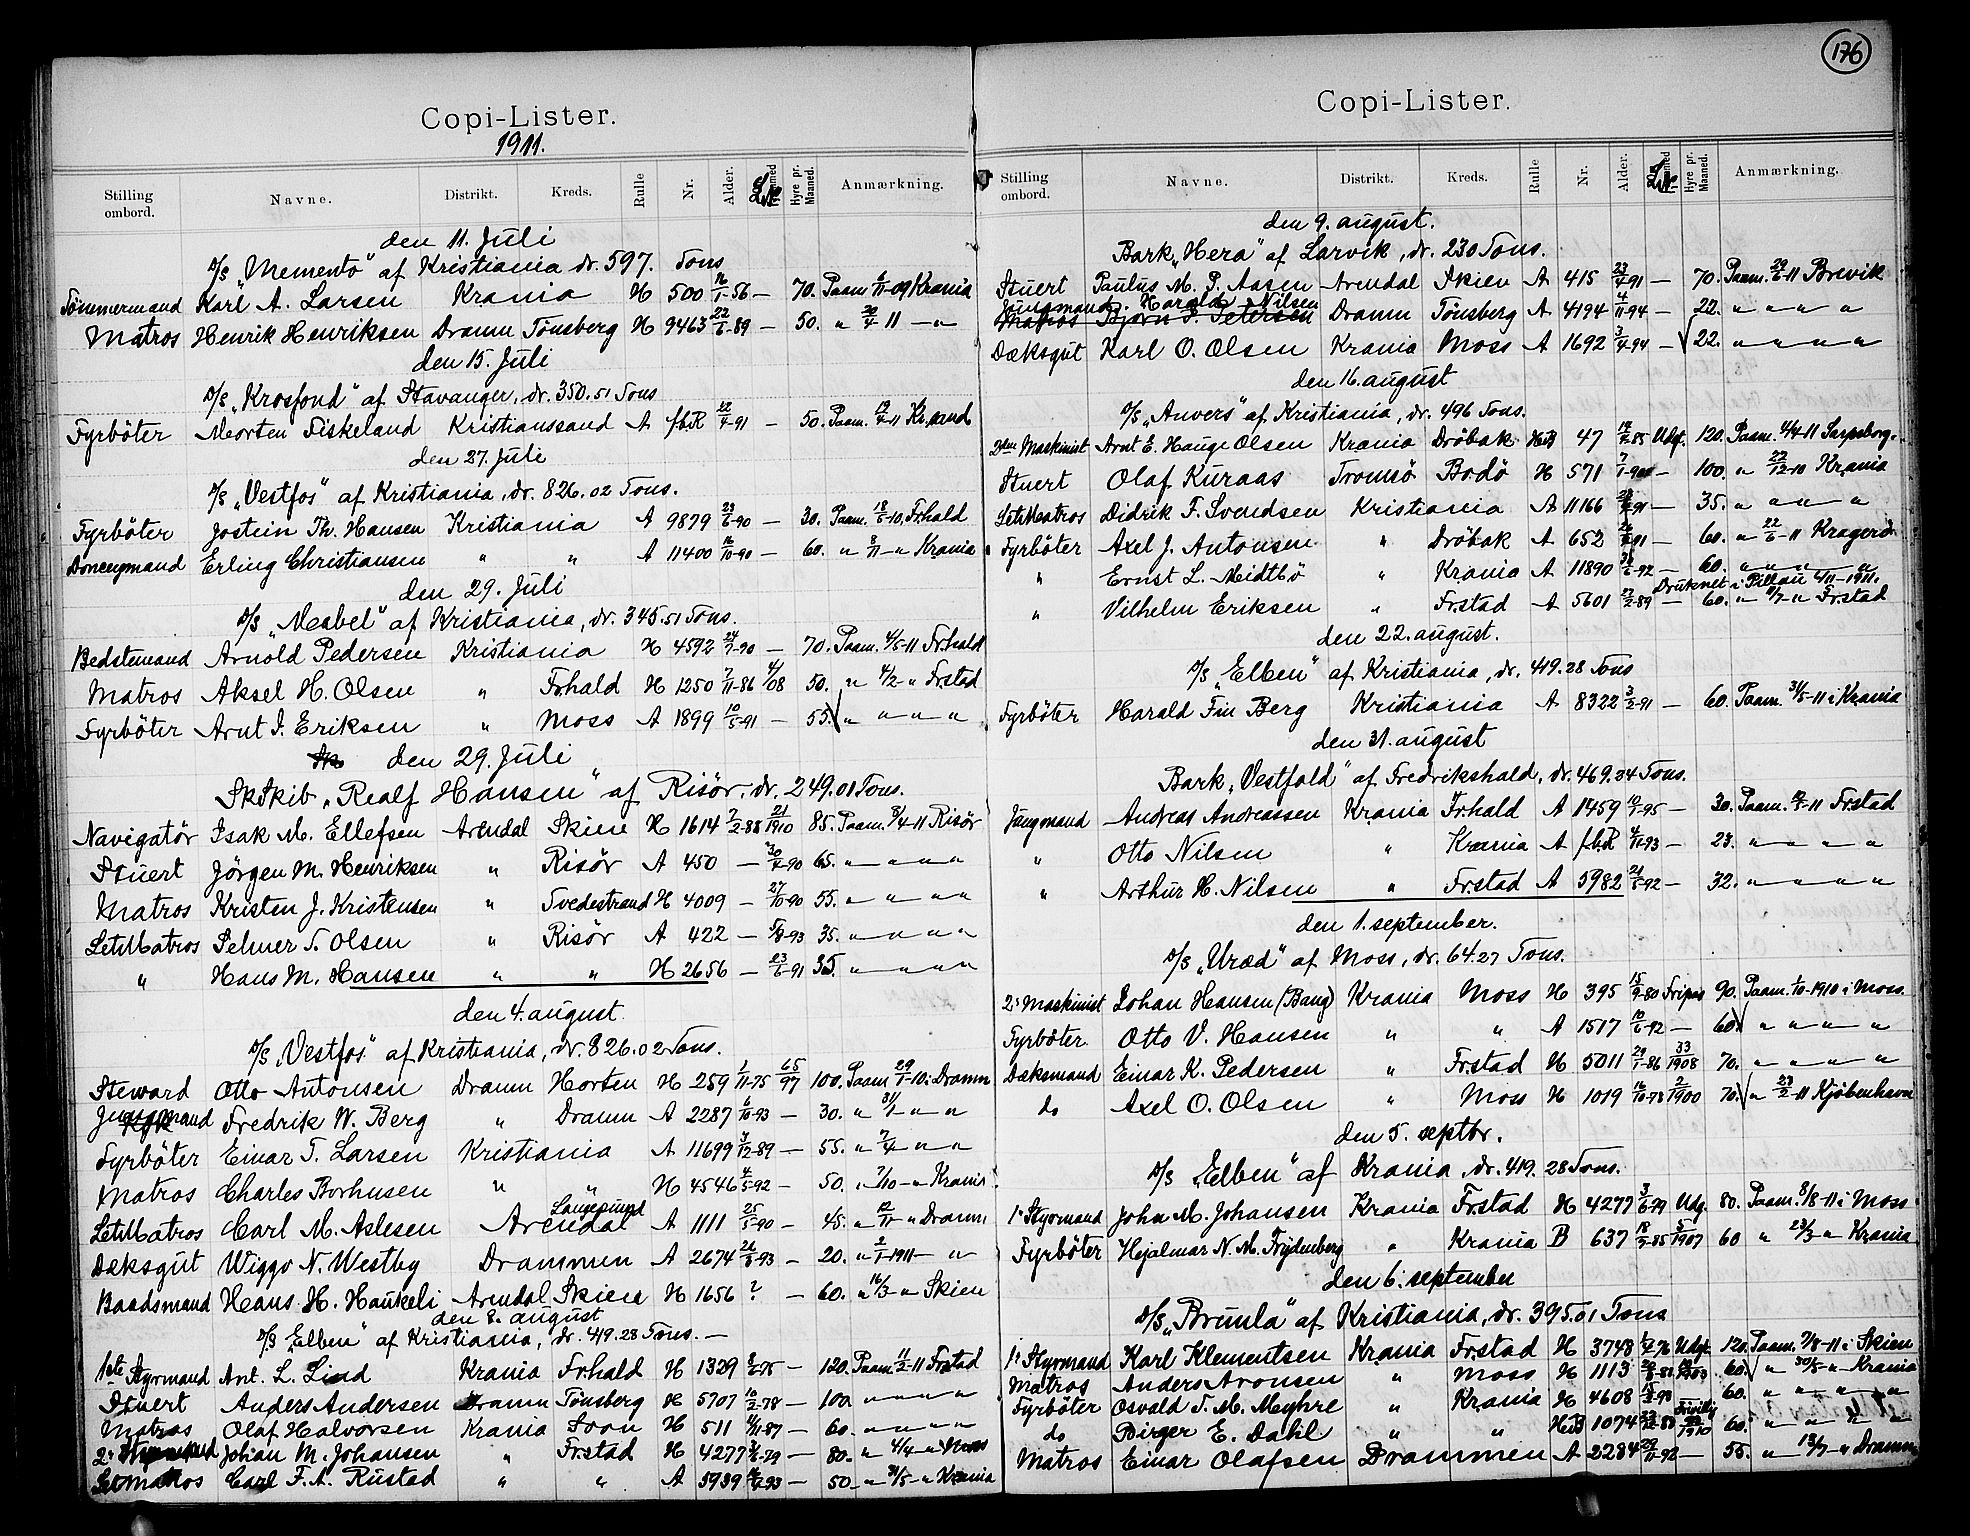 Copi-Lister.
1911.
Stilling ombord. Navne. Distrikt. Kreds. Rulle Nr. Alder. Hyre pr. Maaned. Anmærkning.
den 11. Juli
D/S „Memento“ af Kristiania dr. 597. Tons
Tømmermand Karl A. Larsen Krania H 500 16/1-56 — 70. Paam 6/11-09 Krania
Matros Henrik Henriksen Dramn Tønsberg H 9463 22/6-89 — 50. „ 20/4 11 — „
den 15. Juli
D/S „Krosfond“ af Stavanger, dr. 350.51 Tons
Fyrbøter Morten Fiskeland Kristianssand A fbR 22/4-91 — 50. Paam. 19/4-11 Kr.sand
den 27. Juli
D/S „Vestfos“ af Kristiania, dr. 826.02 Tons.
Fyrbøter Jostein Th. Hansen Kristiania A 9879 23/6-90 — 30. Paam. 18/6-10, Frhald
Donceymand Erling Christiansen „ „ A 11400 16/10-90 — 60. „ 8/11 - „ Krania
den 29. Juli
D/S „Mabel“ af Kristiania, dr. 345.51 Tons.
Bedstemand Arnold Pedersen Kristiania H 4592 24/7-90 — 70. Paam. 4/5-11 Frhald
Matros Aksel H. Olsen „ Frhald H 1250 7/11-86 4/08 50. „ 4/2 - „ Frstad
Fyrbøter Arnt I. Eriksen „ Moss A 1899 10/5-91 — 55. „ „ — „ — „
den 29. Juli
SkSkib „Realf Hansen“ af Risør. dr. 249.01 Tons.
Navigatør Isak M. Ellefsen Arendal Skien H 1614 7/2-88 21/1910 85. Paam. 8/4-11 Risør
Stuert Jørgen M. Henriksen „ Risør A 450 — 30/4-90 65. „ — „ — „ — „
Matros Kristen J. Kristensen „ Tvedestrand H 4009 — 27/10-90 55. „ — „ — „ — „
LetMatros Selmer T. Olsen „ Risør A 422 — 5/8-93 35. „ — „ — „ — „
„ Hans M. Hansen „ „ H 2656 — 23/6-91 35. „ — „ — „ — „
den 4. august.
D/S „Vestfos“ af Kristiania, dr. 826.02 Tons.
Steward Otto Antonsen Dramn Horten H 259 1/11-75 65/97 100. Paam 29/1-10 i Dramn
Jungmand Fredrik W. Berg „ Dramn A 2287 6/10-93 — 30. „ 31/1 - „ — „
Fyrbøter Einar T. Larsen Kristiania A 11699 3/12-89 — 55. „ 7/4 - „ — „
Matros Charles Borhusen „ „ H 4546 4/5-92 — 50. „ 7/10 - „ Krania
LetMatros Carl M. Aslesen Arendal Langesund A 1111 25/5-90 — 45. „ 12/11 - „ Dramn
Dæksgut Wiggo N. Westby Drammen A 2674 26/8-93 — 20. „ 2/1-1911 — „
Baadsmand Hans H. Haukeli Arendal Skien H 1656 ? — 60. „ 16/3 - „ Skien
den 8. august
D/S „Elben“ af Kristiania, dr. 419.28 Tons. —
1ste Styrmand Ant. L. Lind Krania Frhald H 1329 8/6-75 — 120. Paam. 11/2-11 Frstad
Stuert Anders Andersen Dramn Tønsberg H 5707 10/2-78 — 100. „ — „ — „ — „
Matros Olaf Halvorsen Krania Soon H 511 4/11-87 — 60. „ — „ — „ — „
2. Styrmand Johan M. Johansen „ Frstad H 4277 3/6-79 — 80. „ 4/4 - „ Moss
LetMatros Carl F. A. Rustad „ „ A 5939 16/4-93 — 50. „ 31/5 - „ Krania
176
Copi-Lister.
Stilling ombord. Navne. Distrikt. Kreds. Rulle Nr. Alder. Hyre pr. Maaned. Anmærkning.
den 9. august.
Bark „Hera“ af Larvik, dr. 230 Tons.
Stuert Paulus M. P. Aasen Arendal Skien A 415 23/4-91 — 70. Paam. 29/6-11 Brevik
Jungmand. Harald Nilsen
Matros Bjørn P. Petersen Dramn Tønsberg A 4194 4/11-94 — 22. „ — „ — „ — „
Dæksgut Karl O. Olsen Krania Moss A 1692 3/4-94 — 22. „ — „ — „ — „
den 16. august
D/S „Anvers“ af Kristiania, dr. 496 Tons.
2den Maskinist Arnt E. Hauge Olsen Krania Drøbak HB 47 14/8-85 Udg. 120. Paam. 4/4-11 Sarpsborg.
Stuert Olaf Kuraas Tromsø Bodø H 571 7/1-90 — 100. „ 22/12-10 Krania
LetMatros Didrik F. Svendsen Kristiania A 11166 28/8-91 — 35. „ „ — „ — „
Fyrbøter Axel J. Antonsen „ Drøbak A 652 26/8-91 — 60. „ 22/6-11 Kragerø
„ Ernst L. Midtbø „ Krania A 11890 28/6-92 — 60. „ — „ — „ — „
Druknet i Pillau 4/11-1911.
„ Vilhelm Eriksen „ Frstad A 5601 27/2-89 — 60. „ 11/7 - „ Frstad
den 22. august.
D/S „Elben“ af Kristiania, dr. 419.28 Tons
Fyrbøter Harald Fin Berg Kristiania A 8322 3/2-91 — 60. Paam. 31/5-11 i Krania
den 31. august
Bark „Vestfold“ af Fredrikshald, dr. 469.34 Tons.
Jungmand Andreas Andreassen Krania Frhald A 1459 10/9-95 — 30. Paam. 12/7-11 Frstad
„ Otto Nilsen „ Krania A fbR 4/11-93 — 23. „ — „ — „ — „
„ Arthur H. Nilsen „ Frstad A 5982 21/5-92 — 32. „ — „ — „ — „
den 1. september.
D/S „Uræd“ af Moss, dr. 64.27 Tons.
2. Maskinist Johan Hansen (Bang) Krania Moss H 395 15/9-80 Fripas 90. Paam. 1/10-1910 i Moss.
Fyrbøter. Otto V. Hansen „ „ A 1517 10/6-92 — 60. „ „ — „ — „
Dæksmand Einar K. Pedersen „ Frstad H 5011 29/1-86 33/1908 70. „ — „ — „ — „
do Axel O. Olsen „ Moss H 1019 16/10-78 2/1900 70. „ 23/2-11 Kjøbenhavn
den 5. septbr.
D/S „Elben“ af Krania, dr. 419.28 Tons.
1. Styrmand John M. Johansen Krania Frstad H 4277 3/6-79 Udg. 80. Paam. 8/8-11 i Moss
Fyrbøter Hjalmar N. M. Frydenberg „ Krania B 637 18/7-85 5/1907 60 „ 23/3 - „ Krania
den 6. september
D/S „Brunla“ af Kristiania, dr. 395.01 Tons
1. Styrmand Karl Klementsen Krania Frstad H 3748 1/7-76 Udgt 120. Paam. 7/8-11 i Skien
Matros Anders Aronsen „ Moss H 1113 60. „ 30/5 - „ Krania
Fyrbøter Osvald T. M. Meyhre „ Krania H 4608 15/8-90 60. „ „ — „ — „
do Birger E. Dahl „ „ HB 1074 Frivillig 1910 60. „ „ — „ — „
Matros Einar Olafsen Drammen A 2284 22/11-92 — 55. „ 13/7 - „ Dramn